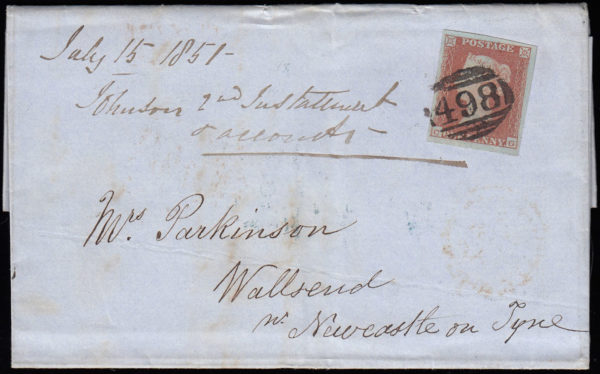 July 15 1851-
Johnson 2nd Instalment
& accounts -
POSTAGE
498
PENNY
Mrs Parkinson
Wallsend
nr Newcastle on Tyne